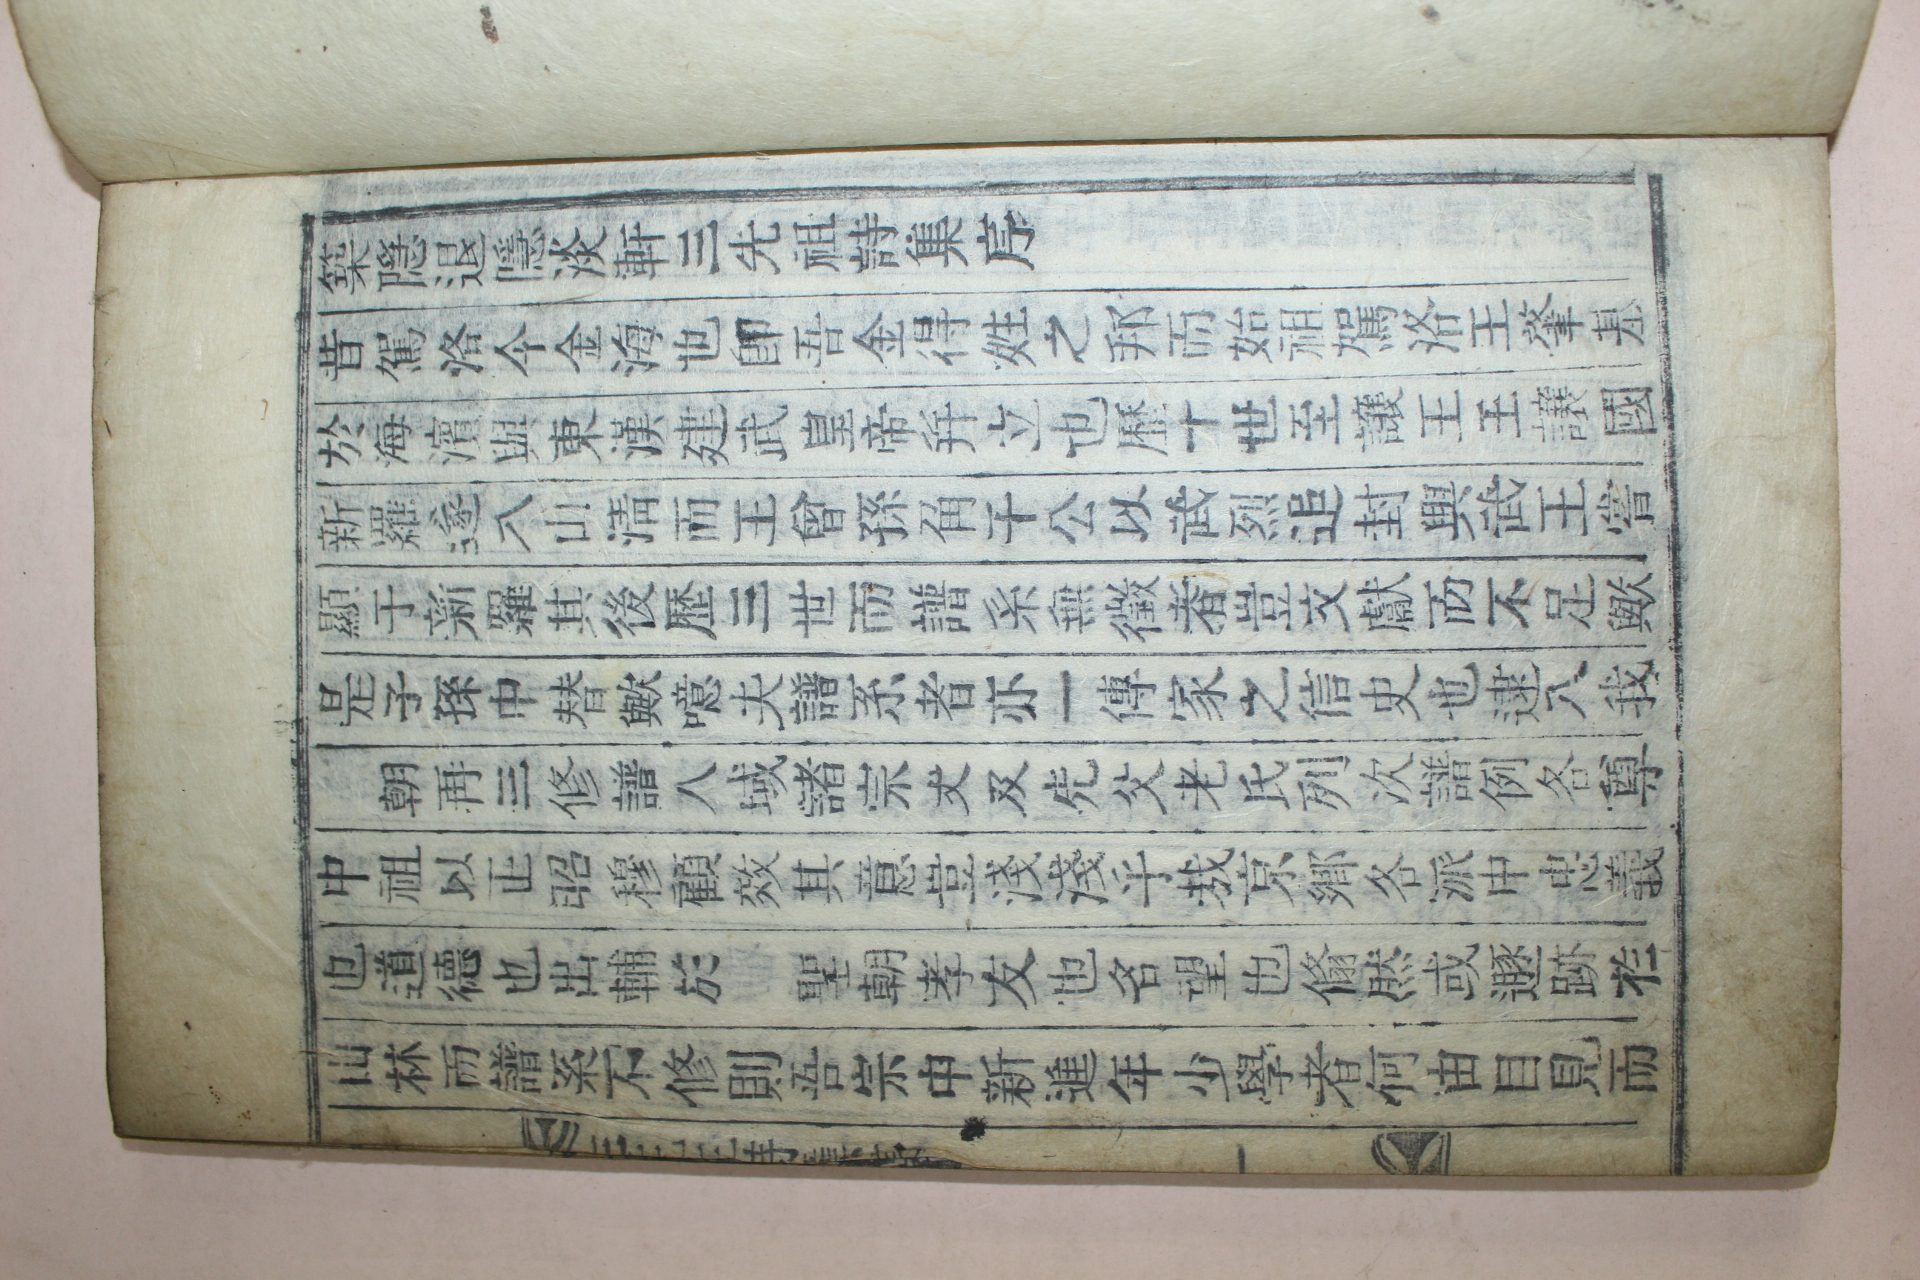 築隱退隱淡軒三先祖詩集序
昔駕洛今金海也卽吾金得姓之邦而始祖駕洛王肇基
於海濱與東漢建武皇帝并立也歷十世至讓王王讓國
新羅遂入山淸而王曾孫角干公以武烈追封興武王嘗
顯于新羅其後歷三世而譜系無徵者豈文獻而不足歟
是子孫中替歟噫夫譜系者亦一傳家之信史也逮入我
朝再三修譜八域諸宗丈及先父老氏列次譜例各尊
中祖以正昭穆顧效其意豈淺淺乎哉京鄉各派中忠義
也道德也出輔於 聖朝孝友也名望也翛然或遯跡於
山林而譜系不修則吾宗中新進年少學者何由目見而